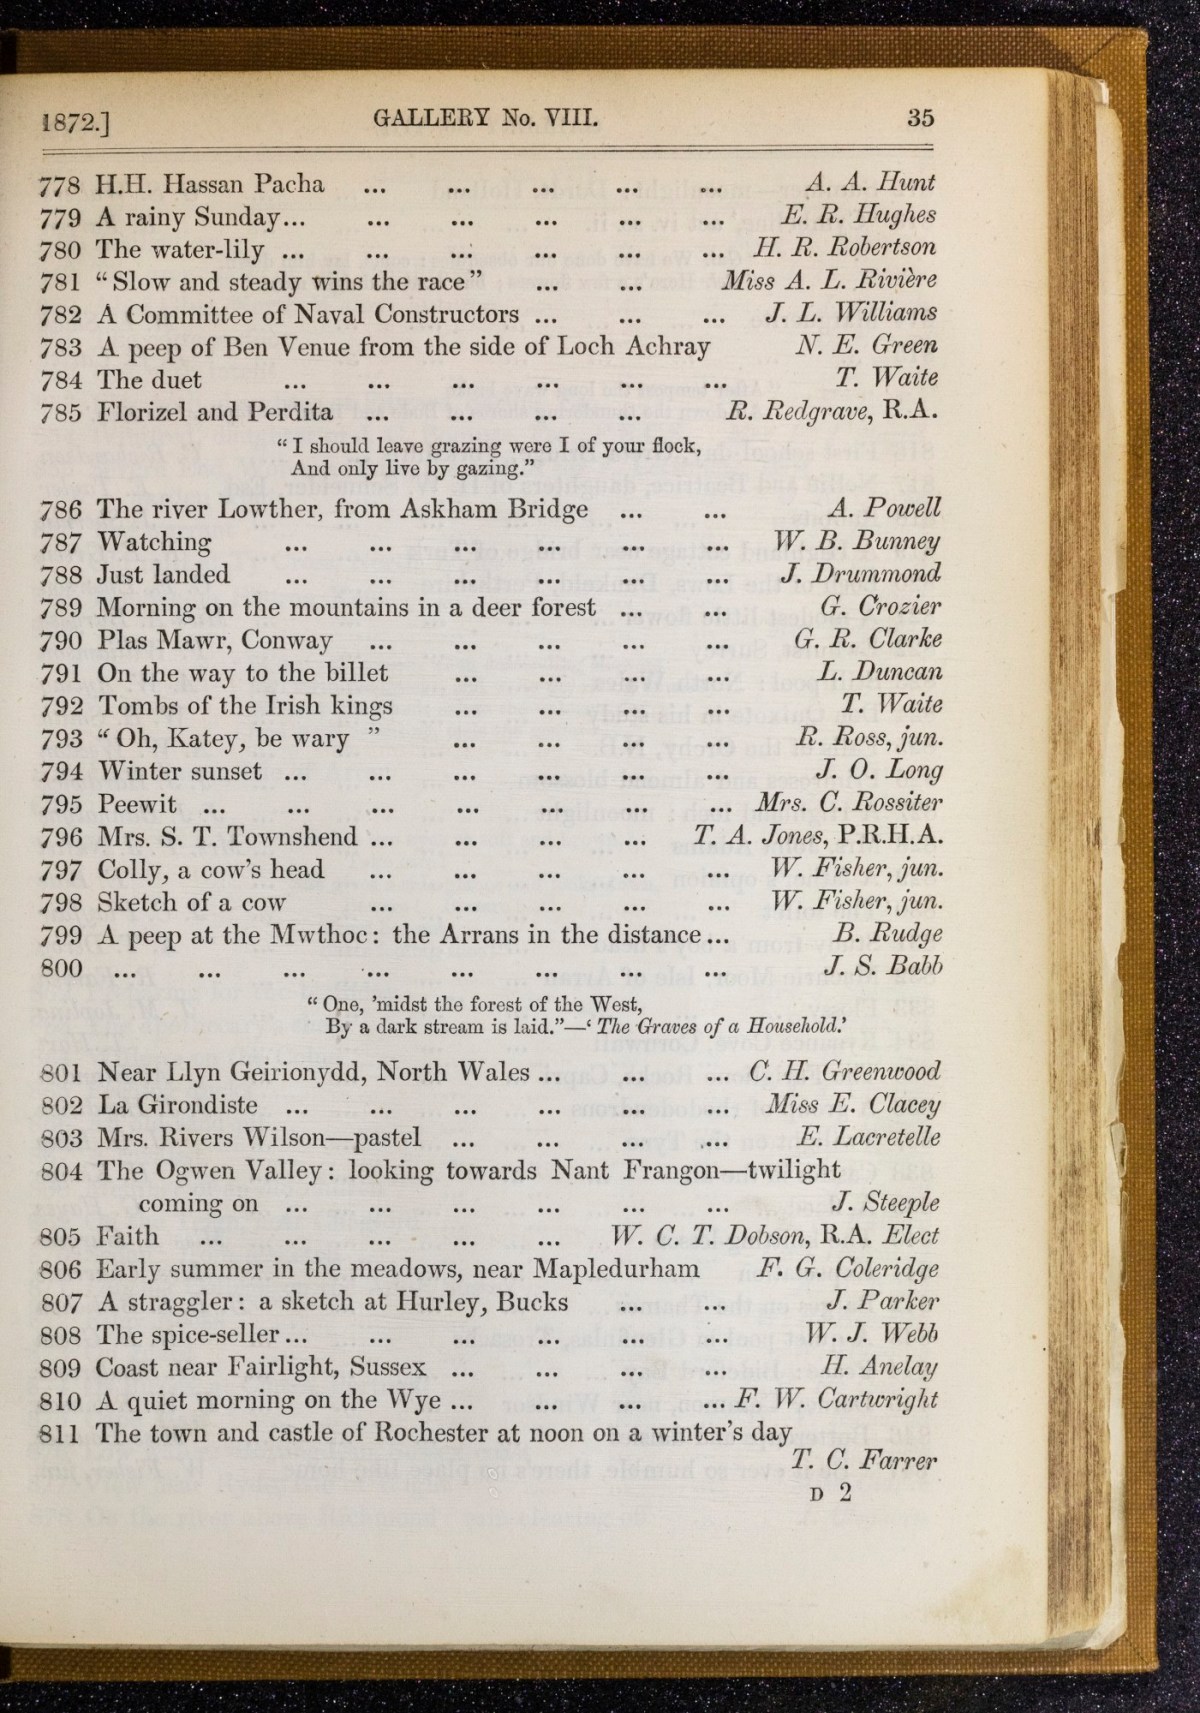 1872.] GALLERY No. VIII. 35
778 H.H. Hassan Pacha ... ... ... ... ... A. A. Hunt
779 A rainy Sunday... ... ... ... ... ... E. R. Hughes
780 The water-lily ... ... ... ... ... ... H. R. Robertson
781 “Slow and steady wins the race” ... ... Miss A. L. Rivière
782 A Committee of Naval Constructors ... ... ... J. L. Williams
783 A peep of Ben Venue from the side of Loch Achray N. E. Green
784 The duet ... ... ... ... ... ... T. Waite
785 Florizel and Perdita ... ... ... ... R. Redgrave, R.A.
“I should leave grazing were I of your flock,
And only live by gazing.”
786 The river Lowther, from Askham Bridge ... ... A. Powell
787 Watching ... ... ... ... ... ... W. B. Bunney
788 Just landed ... ... ... ... ... ... J. Drummond
789 Morning on the mountains in a deer forest ... ... G. Crozier
790 Plas Mawr, Conway ... ... ... ... ... G. R. Clarke
791 On the way to the billet ... ... ... ... L. Duncan
792 Tombs of the Irish kings ... ... ... ... T. Waite
793 “Oh, Katey, be wary” ... ... ... ... R. Ross, jun.
794 Winter sunset ... ... ... ... ... ... J. O. Long
795 Peewit ... ... ... ... ... ... ... Mrs. C. Rossiter
796 Mrs. S. T. Townshend ... ... ... ... T. A. Jones, P.R.H.A.
797 Colly, a cow’s head ... ... ... ... ... W. Fisher, jun.
798 Sketch of a cow ... ... ... ... ... W. Fisher, jun.
799 A peep at the Mwthoc: the Arrans in the distance... B. Rudge
800 ... ... ... ... ... ... ... ... J. S. Babb
“One, ’midst the forest of the West,
By a dark stream is laid.”—‘The Graves of a Household.’
801 Near Llyn Geirionydd, North Wales ... ... ... C. H. Greenwood
802 La Girondiste ... ... ... ... ... ... Miss E. Clacey
803 Mrs. Rivers Wilson—pastel ... ... ... ... E. Lacretelle
804 The Ogwen Valley: looking towards Nant Frangon—twilight
coming on ... ... ... ... ... ... J. Steeple
805 Faith ... ... ... ... ... W. C. T. Dobson, R.A. Elect
806 Early summer in the meadows, near Mapledurham F. G. Coleridge
807 A straggler: a sketch at Hurley, Bucks ... ... J. Parker
808 The spice-seller... ... ... ... ... ... W. J. Webb
809 Coast near Fairlight, Sussex ... ... ... ... H. Anelay
810 A quiet morning on the Wye ... ... ... ... F. W. Cartwright
811 The town and castle of Rochester at noon on a winter’s day
T. C. Farrer
D 2